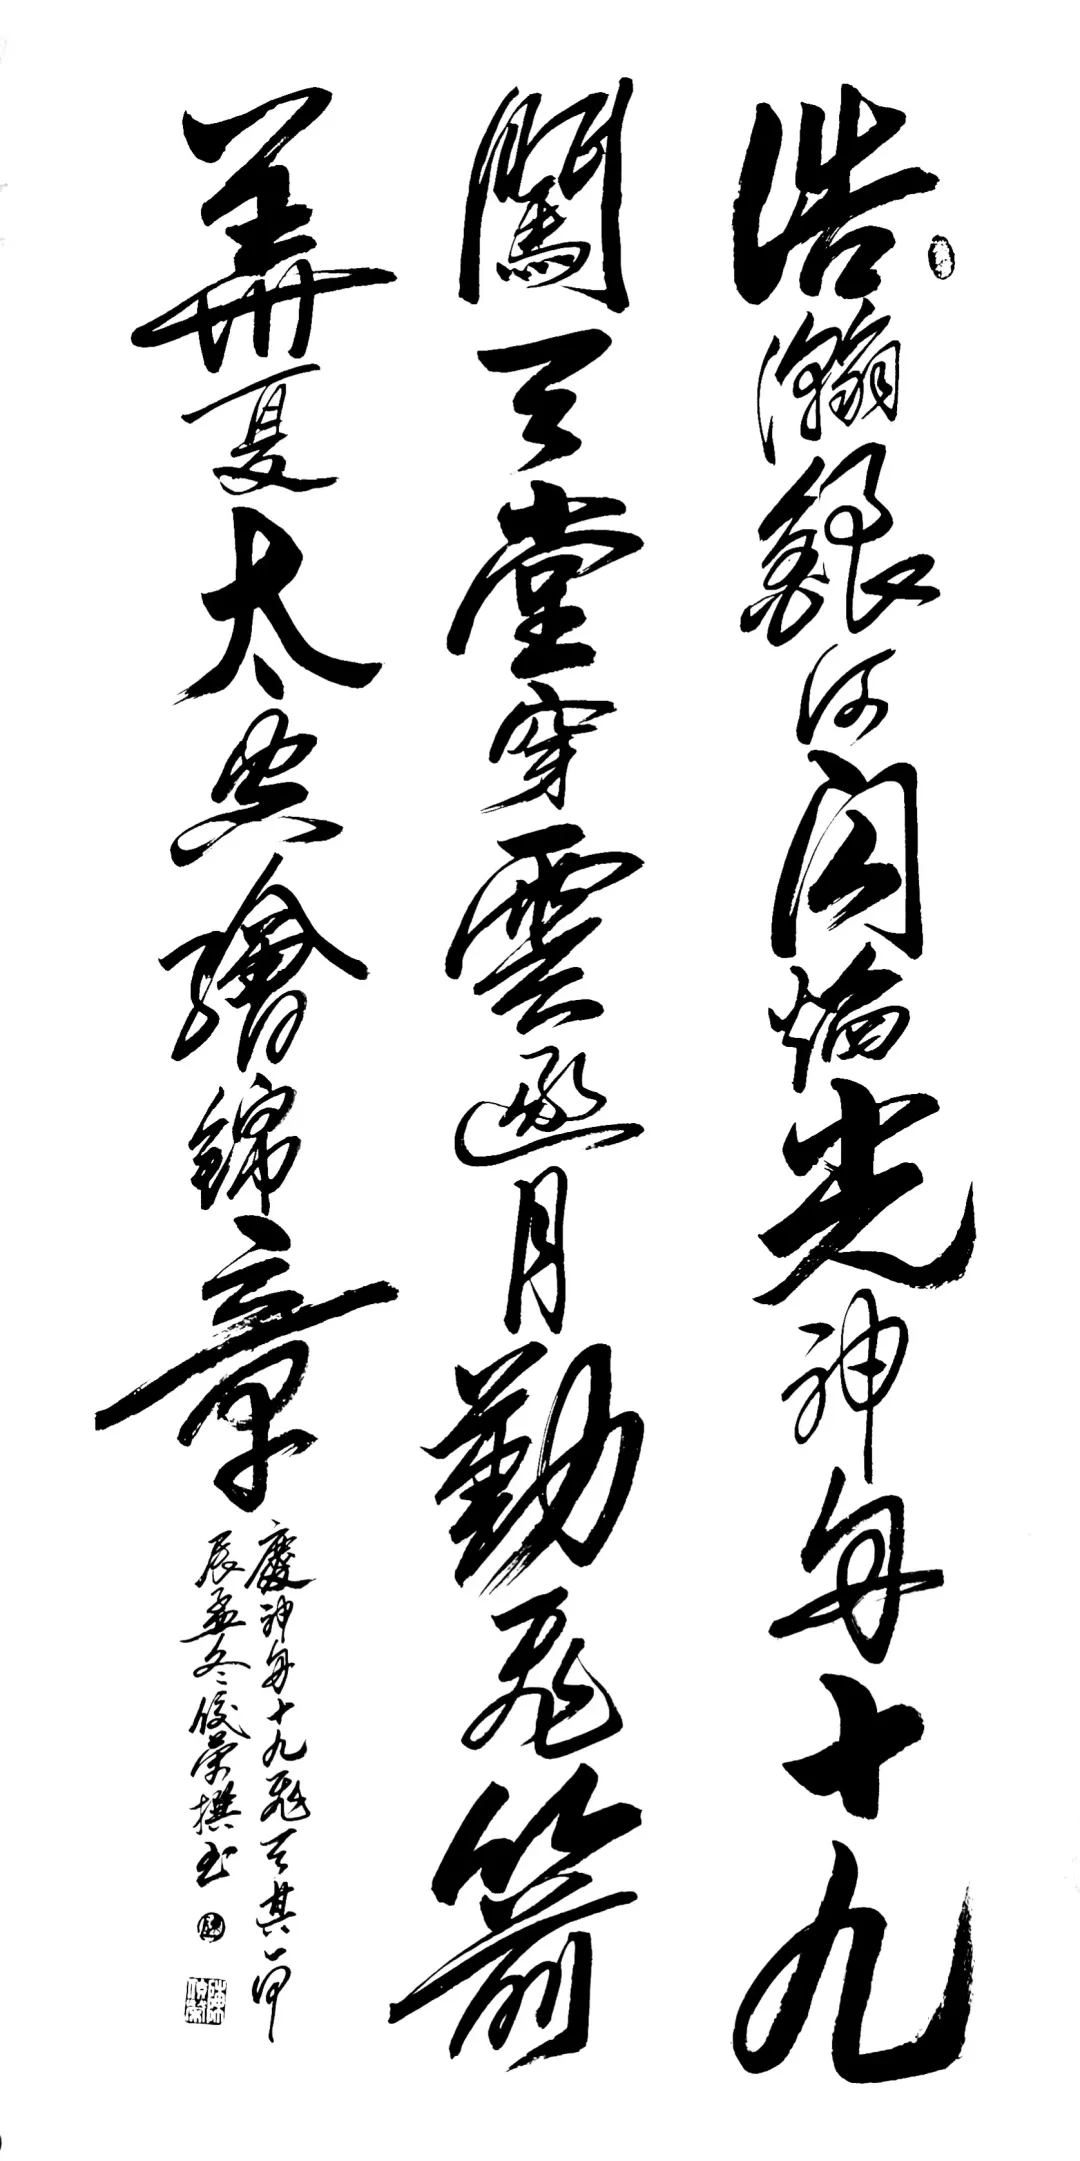 浩瀚銀河閃焰光神舟十九
闖天堂穿雲邀月勤飛箭
華夏太空繪錦章
慶神舟十九飛天其一甲
辰孟冬俊榮撰书